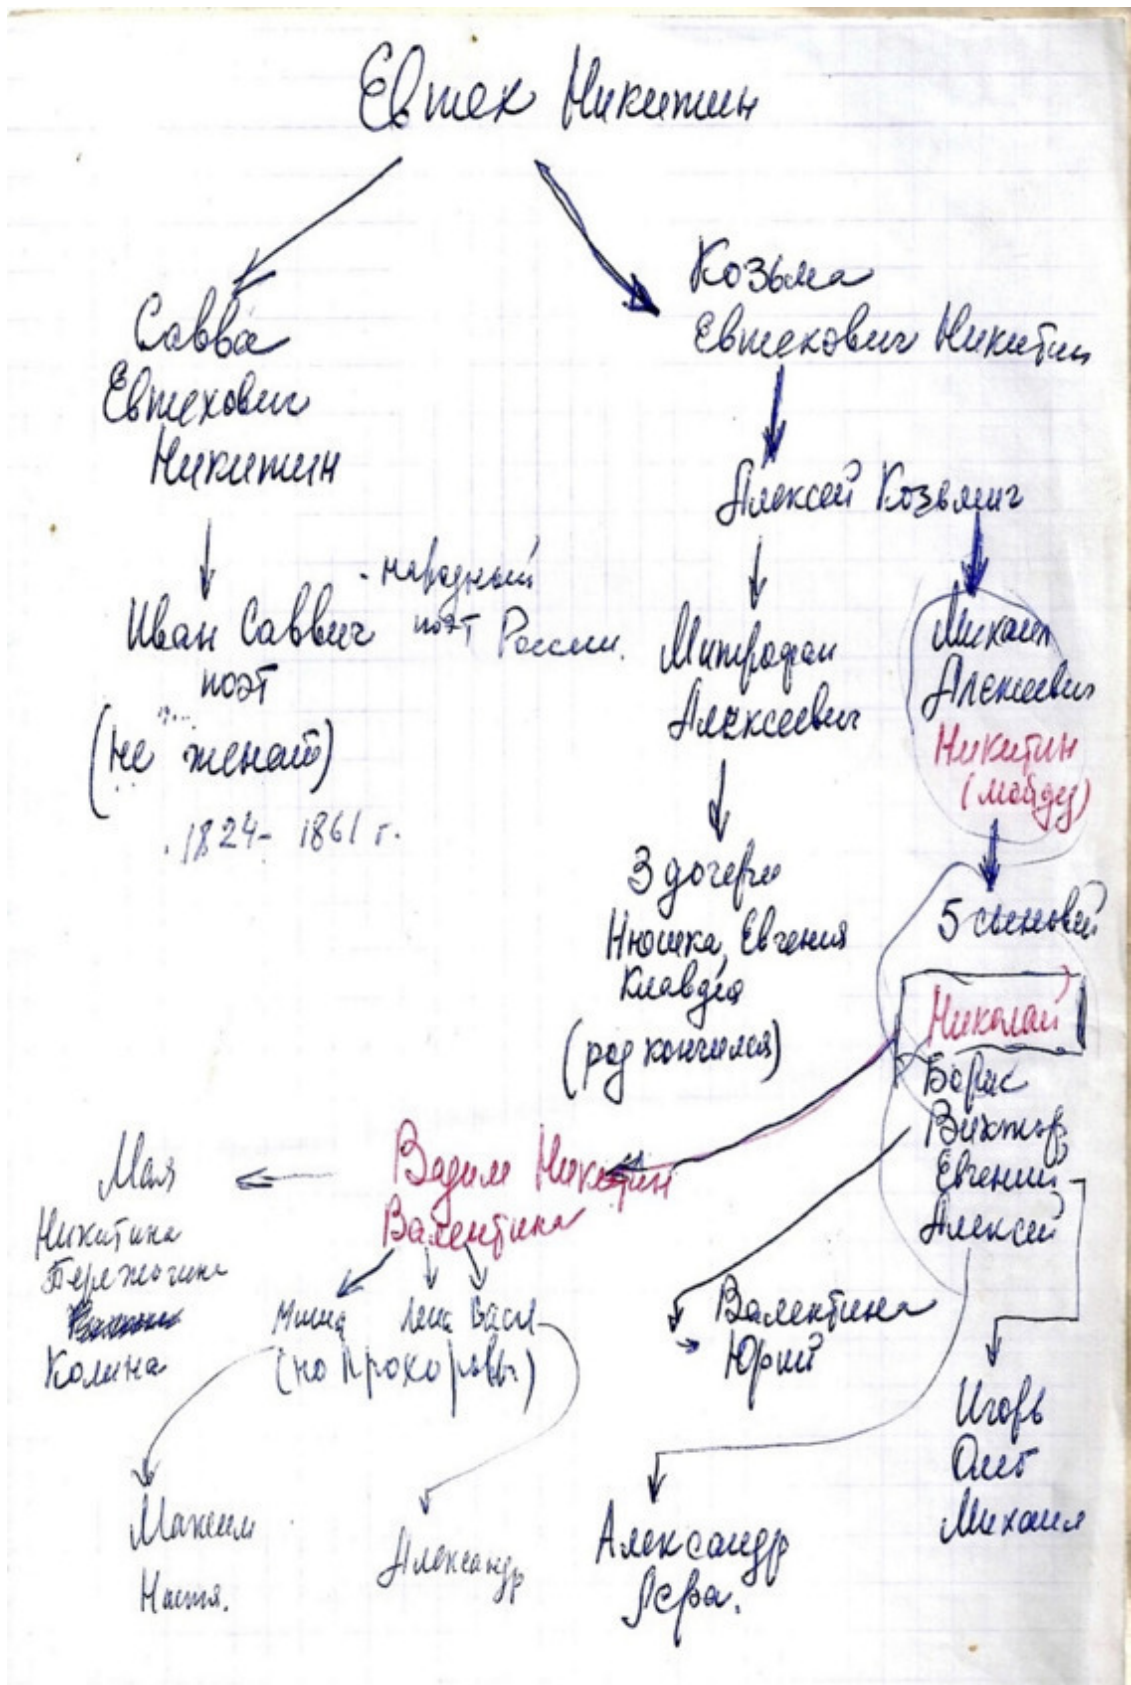 Евтех Никитин
Савва
Евтехович
Никитин
Иван Саввич
поэт
- народный
поэт России.
(не женат)
. 1824 - 1861 г.
Козьма
Евтехович Никитин
Алексей Козьмич
Митрофан
Алексеевич
3 дочери
Нюшка, Евгения
Клавдия
(род кончился)
Михаил
Алексеевич
Никитин
(мой дед)
5 сыновей
Николай
Борис
Виктор
Евгений
Алексей
Вадим Никитин
Валентина
Мая
Никитина
Калина
Миша Лена Вася
(но Прохоровы)
Валентина
Юрий
Игорь
Олег
Михаил
Максим
Настя.
Александр
Александр
Лера.